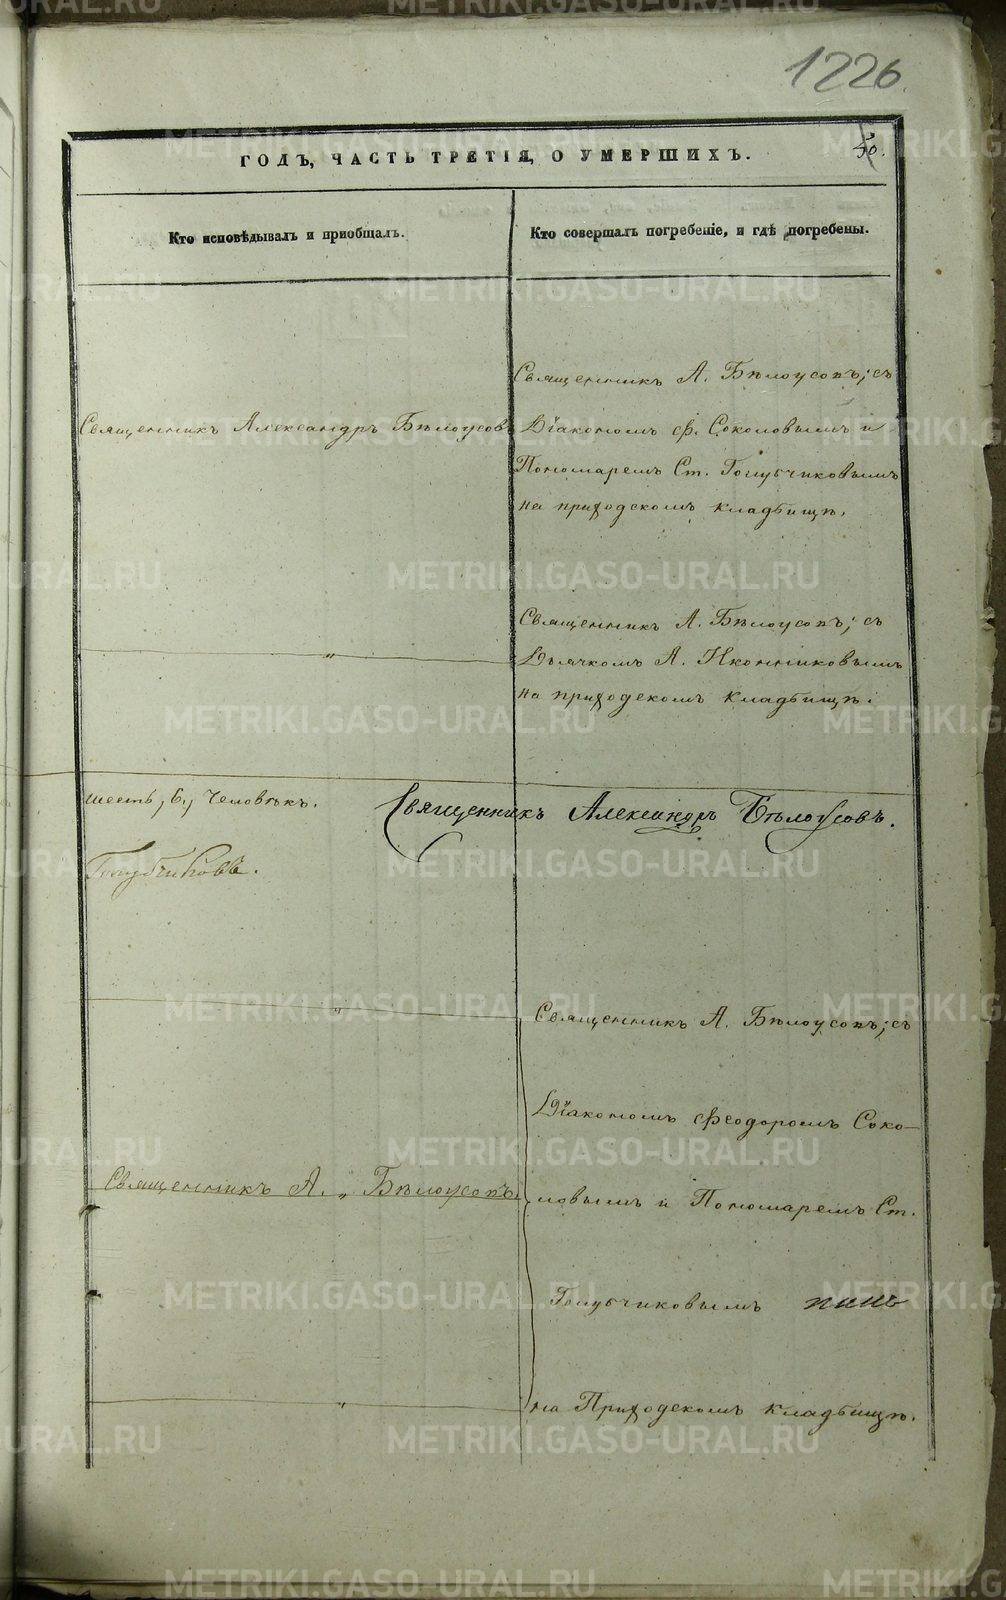 1226.
30.
ГОДЪ, ЧАСТЬ ТРЕТІЯ, О УМЕРШИХЪ.
Кто исповѣдывалъ и пріобщалъ.
Кто совершалъ погребеніе, и гдѣ погребены.
Священникъ Александръ Бѣлоусовъ
Священникъ А. Бѣлоусовъ; съ
Діакономъ Ф. Соколовымъ и
Пономаремъ Ст. Голубчиковымъ
на приходскомъ кладбищѣ.
"
Священникъ А. Бѣлоусовъ; съ
Дьячкомъ А. Иконниковымъ
на приходскомъ кладбищѣ.
шесть, 6., человѣкъ.
Священникъ Александръ Бѣлоусовъ.
Голубчиковъ.
"
Священникъ А. Бѣлоусовъ; съ
Діакономъ Феодоромъ Соко-
Священникъ А. „ Бѣлоусовъ.
ловымъ и Пономаремъ Ст.
Голубчиковымъ
"
на Приходскомъ кладбищѣ.
METRIKI.GASO-URAL.RU